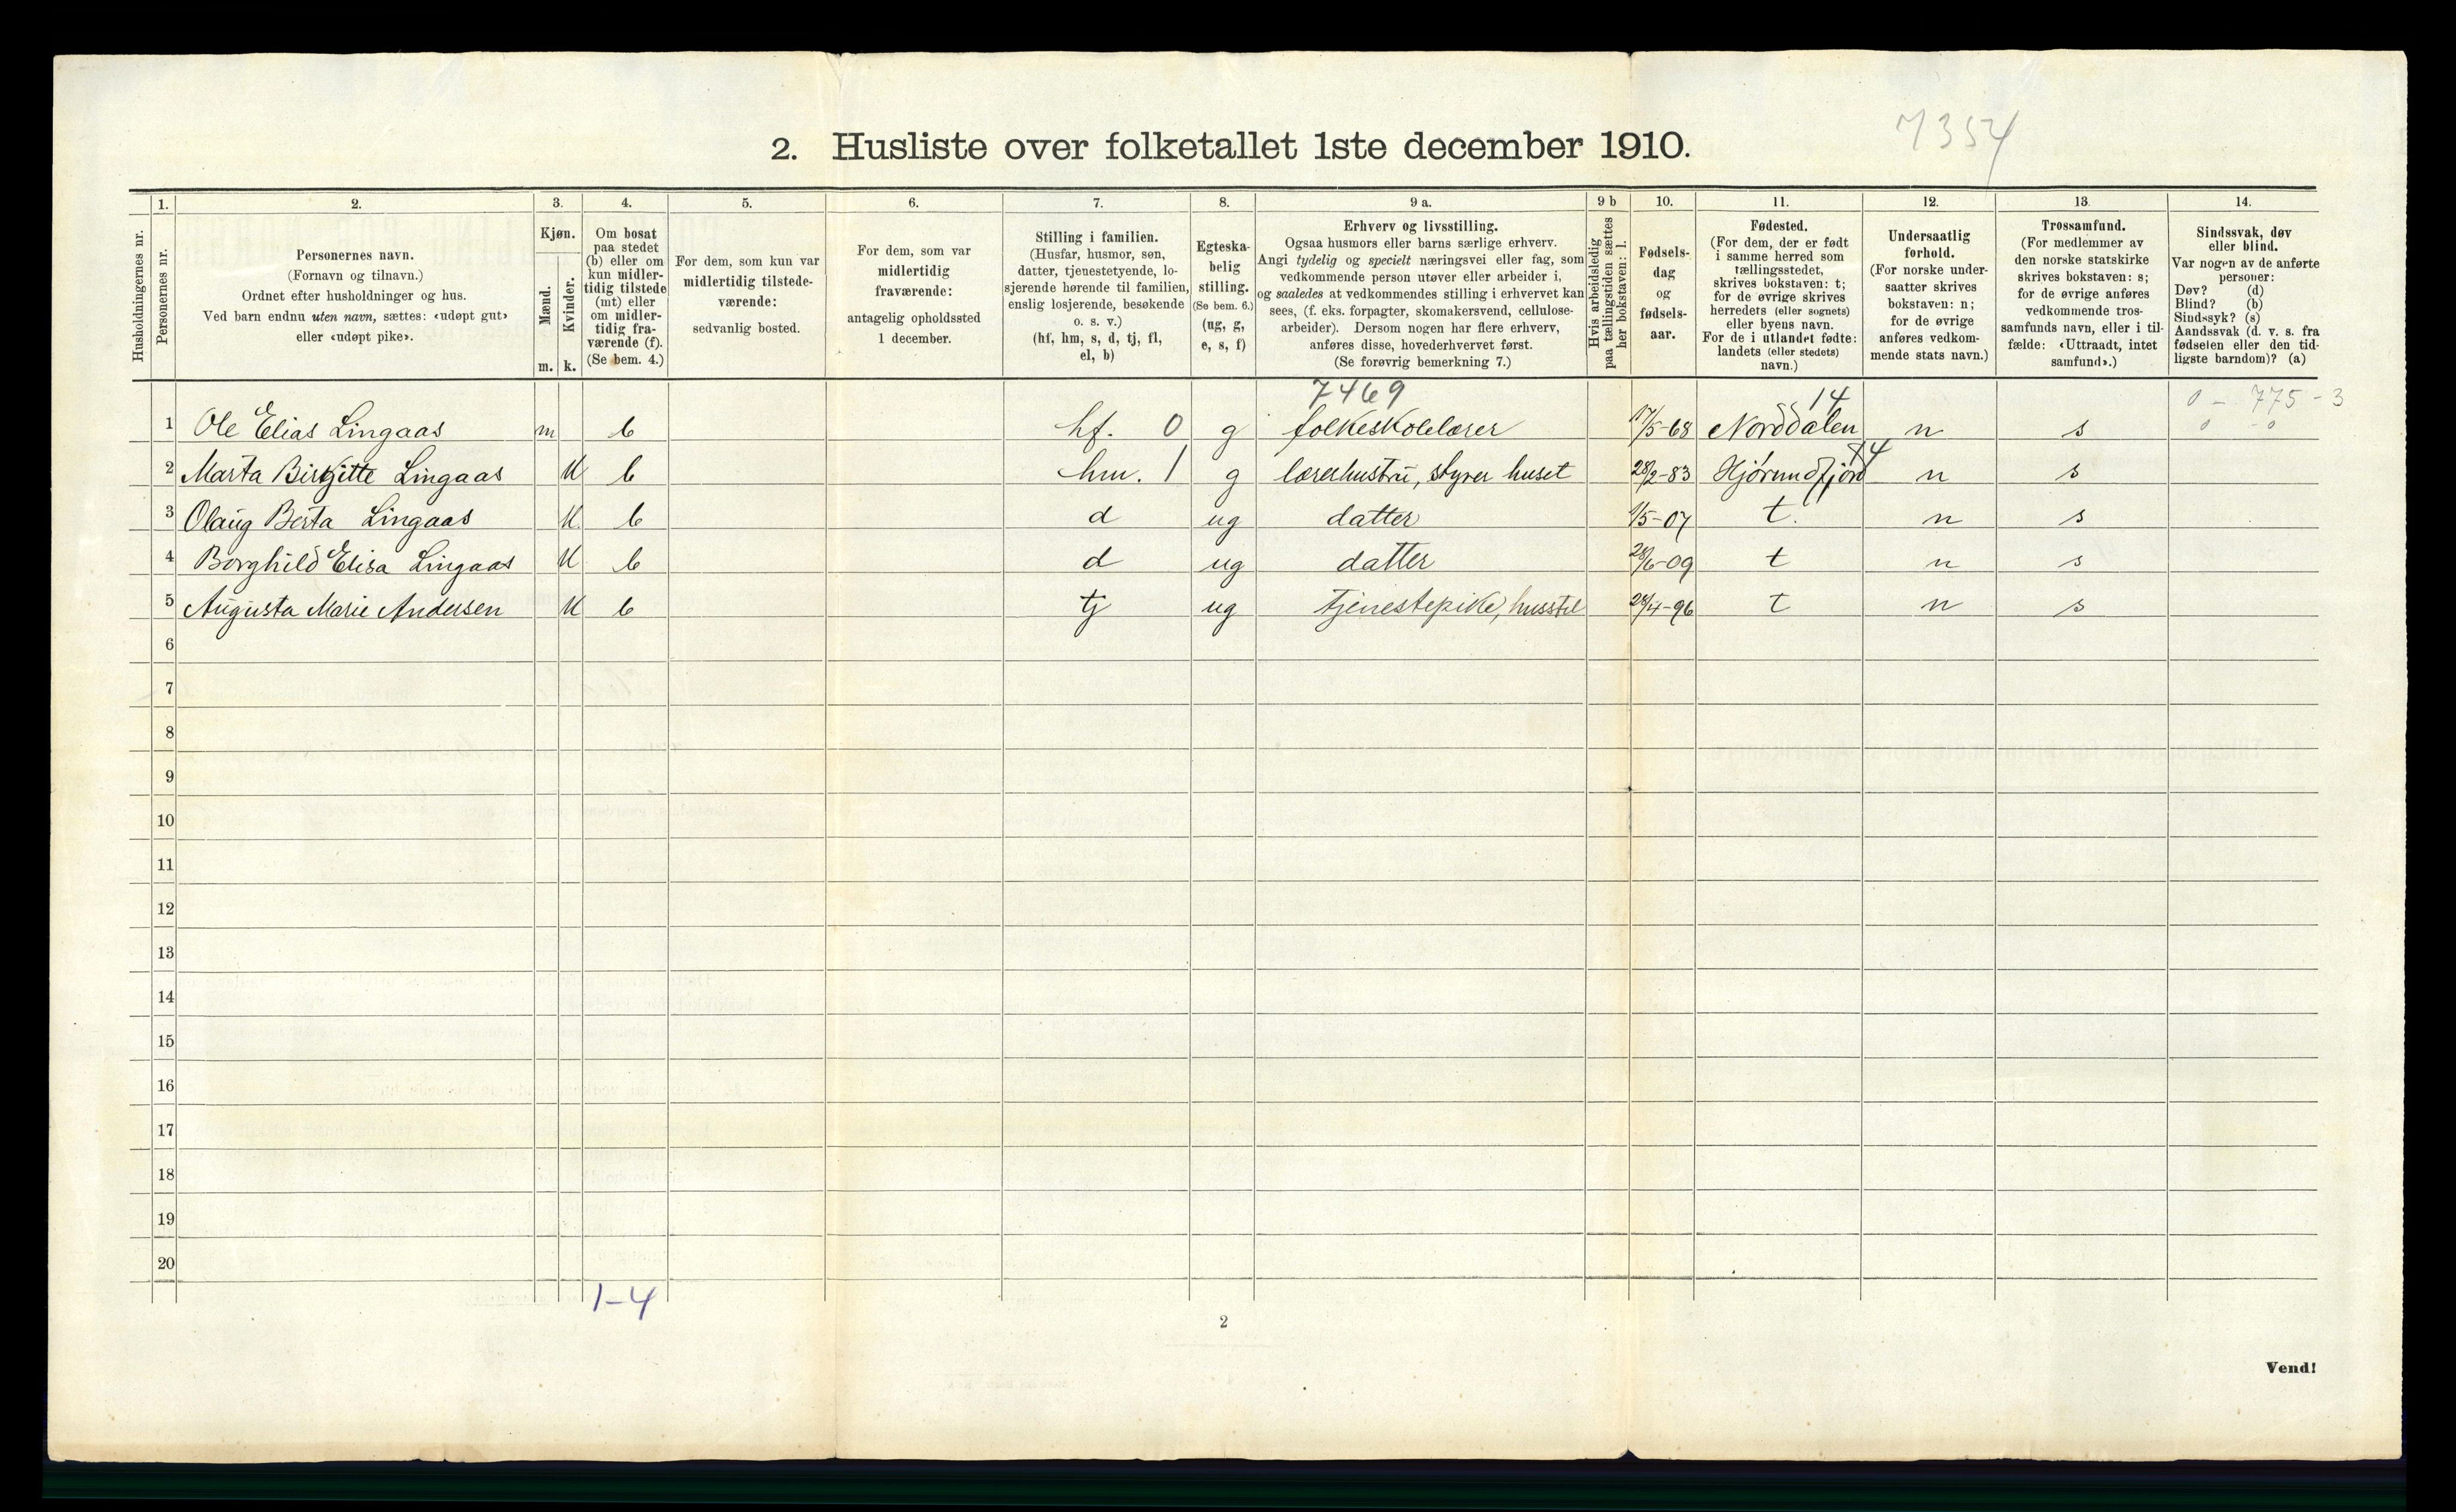 7354
2. Husliste over folketallet 1ste december 1910.
Husholdningernes nr.
1.
Personernes nr.
2.
Personernes navn.
(Fornavn og tilnavn.)
Ordnet efter husholdninger og hus.
Ved barn endnu uten navn, sættes: «udøpt gut»
eller «udøpt pike».
3.
Kjøn.
Mænd.
Kvinder.
m. k.
4.
Om bosat
paa stedet
(b) eller om
kun midler-
tidig tilstede
(mt) eller
om midler-
tidig fra-
værende (f).
(Se bem. 4.)
5.
For dem, som kun var
midlertidig tilstede-
værende:
sedvanlig bosted.
6.
For dem, som var
midlertidig
fraværende:
antagelig opholdssted
1 december.
7.
Stilling i familien.
(Husfar, husmor, søn,
datter, tjenestetyende, lo-
sjerende hørende til familien,
enslig losjerende, besøkende
o. s. v.)
(hf, hm, s, d, tj, fl,
el, b)
8.
Egteska-
belig
stilling.
(Se bem. 6.)
(ug, g,
e, s, f)
9 a.
Erhverv og livsstilling.
Ogsaa husmors eller barns særlige erhverv.
Angi tydelig og specielt næringsvei eller fag, som
vedkommende person utøver eller arbeider i,
og saaledes at vedkommendes stilling i erhvervet kan
sees, (f. eks. forpagter, skomakersvend, cellulose-
arbeider). Dersom nogen har flere erhverv,
anføres disse, hovederhvervet først.
(Se forøvrig bemerkning 7.)
9 b
Hvis arbeidsledig
paa tællingstiden sættes
her bokstaven: l.
10.
Fødsels-
dag
og
fødsels-
aar.
11.
Fødested.
(For dem, der er født
i samme herred som
tællingsstedet,
skrives bokstaven: t;
for de øvrige skrives
herredets (eller sognets)
eller byens navn.
For de i utlandet fødte:
landets (eller stedets)
navn.)
12.
Undersaatlig
forhold.
(For norske under-
saatter skrives
bokstaven: n;
for de øvrige
anføres vedkom-
mende stats navn.)
13.
Trossamfund.
(For medlemmer av
den norske statskirke
skrives bokstaven: s;
for de øvrige anføres
vedkommende tros-
samfunds navn, eller i til-
fælde: «Uttraadt, intet
samfund».)
14.
Sindssvak, døv
eller blind.
Var nogen av de anførte
personer:
Døv? (d)
Blind? (b)
Sindssyk? (s)
Aandssvak (d. v. s. fra
fødselen eller den tid-
ligste barndom)? (a)
7469 14 0 - 775 - 3
1 Ole Elias Lingaas m b hf. 0 g folkeskolelærer 17/5-68 Norddalen n s 0 - 0
14
2 Marta Birgitte Lingaas k b hm. 1 g lærerhustru, styrer huset 28/2-83 Hjørundfjord n s
3 Olaug Berta Lingaas k b d ug datter 1/5-07 t. n s
4 Borghild Elisa Lingaas k b d ug datter 28/6-09 t n s
5 Augusta Marie Andersen k b tj ug tjenestepike, husstel 28/4-96 t n s
6
7
8
9
10
11
12
13
14
15
16
17
18
19
20
1-4
2
Vend!